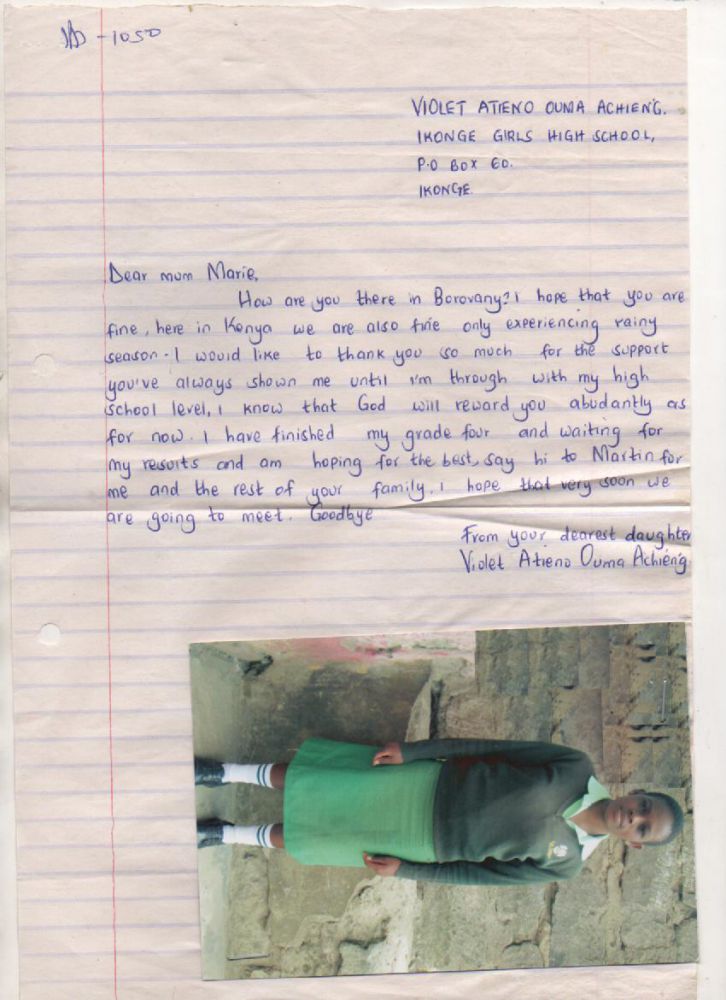 - 1050
VIOLET ATIENO OUMA ACHIENG.
IKONGE GIRLS HIGH SCHOOL,
P.O BOX 60.
IKONGE.
Dear mum Marie,
How are you there in Borovany? I hope that you are
fine, here in Kenya we are also fine only experiencing rainy
season. I would like to thank you so much for the support
you've always shown me until I'm through with my high
school level, I know that God will reward you abudantly as
for now. I have finished my grade four and waiting for
my results and am hoping for the best, say hi to Martin for
me and the rest of your family. I hope that very soon we
are going to meet. Goodbye
From your dearest daughter
Violet Atieno Ouma Achieng